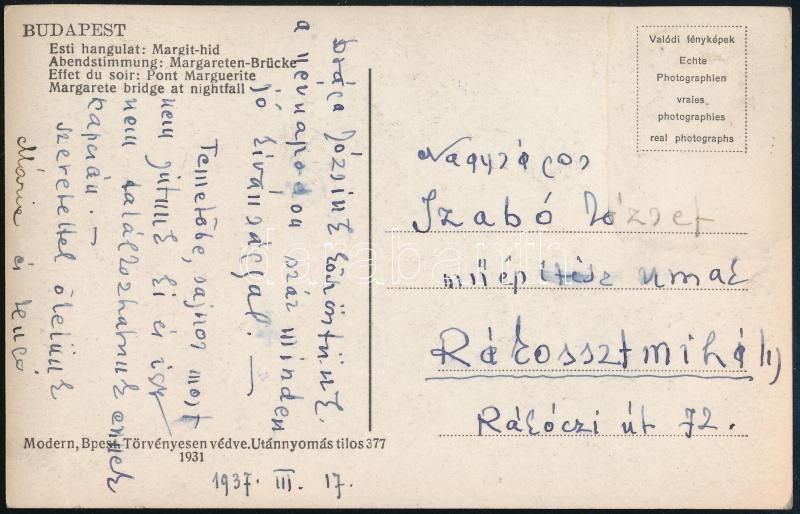 BUDAPEST
Esti hangulat: Margit-hid
Abendstimmung: Margareten-Brücke
Effet du soir: Pont Marguerite
Margarete bridge at nightfall
Valódi fényképek
Echte
Photographien
vraies
photographies
real photographs
Drága Józsink köszöntünk
a nevnapodon száz minden
jó kívánsággal. —
Temetőbe, sajnos most
nem jutunk ki és igy
nem találkozhatunk ennek
kapcsán. —
szeretettel ölelünk
Mária és
Nagyságos
Szabó József
műépítész urnak
Rákossztmihály
Rákóczi út 72.
Modern, Bpest. Törvényesen védve. Utánnyomás tilos 377
1931
1937. III. 17.
darabanth